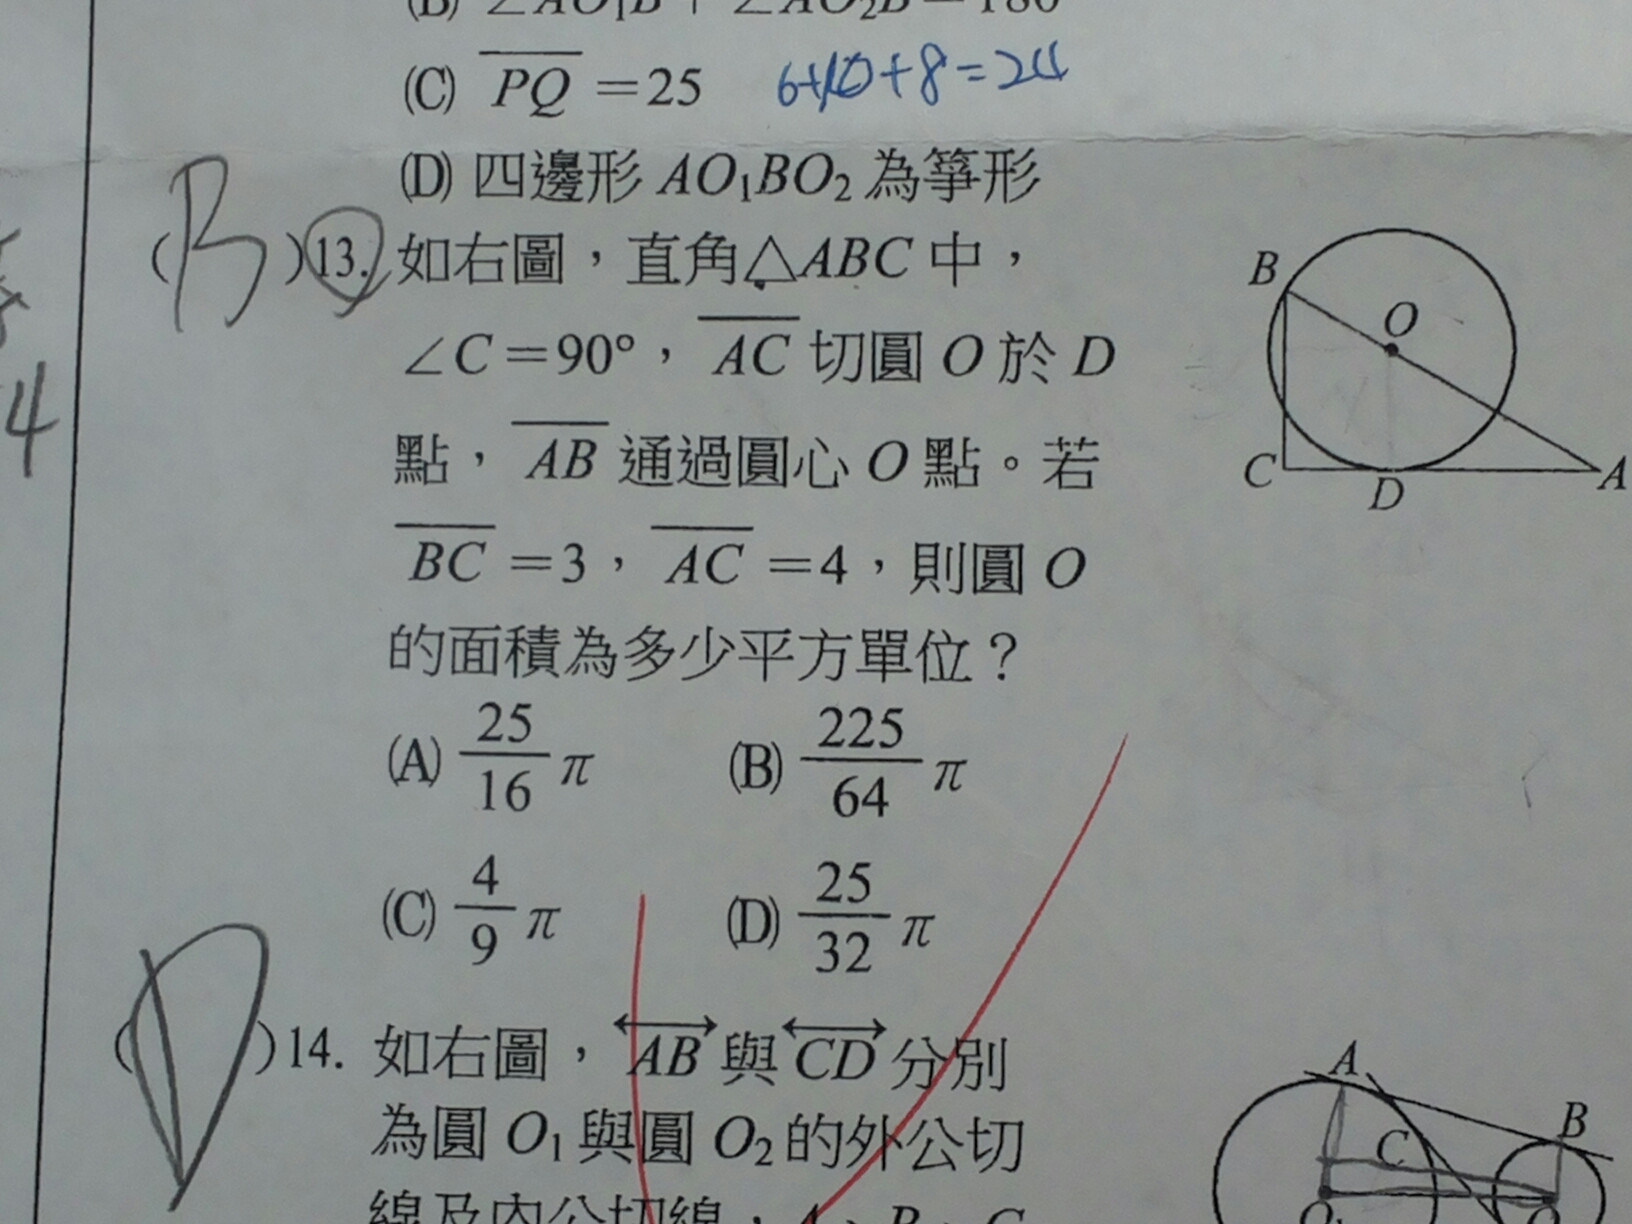 (B) ∠AO₁B + ∠AO₂B = 180
(C) PQ = 25 6+10+8=24
(D) 四邊形 AO₁BO₂ 為箏形
(B)13. 如右圖，直角△ABC 中，
∠C＝90°，AC 切圓 O 於 D
點，AB 通過圓心 O 點。若
BC＝3，AC＝4，則圓 O
的面積為多少平方單位？
(A) 25/16 π (B) 225/64 π
(C) 4/9 π (D) 25/32 π
B
O
C
D
A
4
(D)14. 如右圖，AB 與 CD 分別
為圓 O₁ 與圓 O₂ 的外公切
線及內公切線，A、B、C
A
B
C
O₁